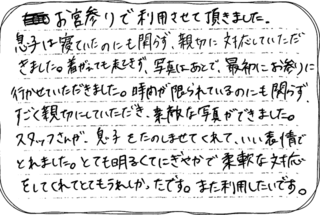 お宮参りで利用させて頂きました。
息子は寝ていたのにも関らず、親切に対応していただ
きました。着がえても起きず、写真はあとで、最初にお参りに
行かせていただきました。時間が限られているのにも関らず、
すごく親切にしていただき、素敵な写真ができました。
スタッフさんが、息子をたのしませてくれて、いい表情で
とれました。とても明るくてにぎやかで柔軟な対応
をしてくれてとてもうれしかったです。また利用したいです。